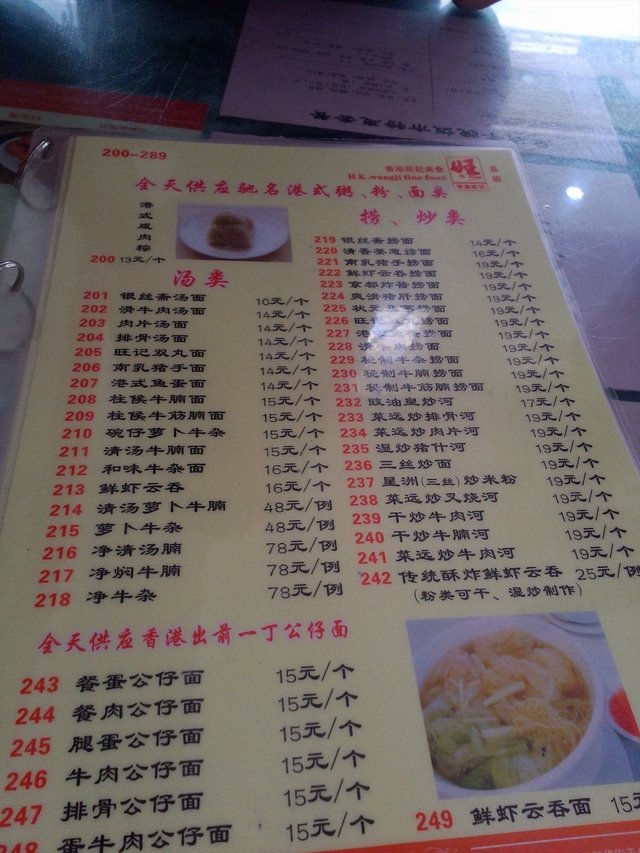 200-289
香港旺记美食
H K.wangji fine food
旺
总店
全天供应驰名港式粥、粉、面类
港式咸肉粽
200 13元/个
汤类
201 银丝斋汤面 10元/个
202 滑牛肉汤面 14元/个
203 肉片汤面 14元/个
204 排骨汤面 14元/个
205 旺记双丸面 14元/个
206 南乳猪手面 14元/个
207 港式鱼蛋面 14元/个
208 柱候牛腩面 15元/个
209 柱候牛筋腩面 15元/个
210 碗仔萝卜牛杂 15元/个
211 清汤牛腩面 15元/个
212 和味牛杂面 16元/个
213 鲜虾云吞 16元/个
214 清汤萝卜牛腩 48元/例
215 萝卜牛杂 48元/例
216 净清汤腩 78元/例
217 净焖牛腩 78元/例
218 净牛杂 78元/例
捞、炒类
219 银丝斋捞面 14元/个
220 清香姜葱捞面 16元/个
221 南乳猪手捞面 19元/个
222 鲜虾云吞捞面 19元/个
223 京都炸酱捞面 19元/个
224 爽滑猪肝捞面 19元/个
225 状元 捞面 19元/个
226 旺记 捞面 19元/个
227 港 捞面 19元/个
228 滑牛肉捞面 19元/个
229 秘制牛杂捞面 19元/个
230 秘制牛腩捞面 19元/个
231 秘制牛筋腩捞面 19元/个
232 豉油皇炒河 17元/个
233 菜远炒排骨河 19元/个
234 菜远炒肉片河 19元/个
235 湿炒猪什河 19元/个
236 三丝炒面 19元/个
237 星洲(三丝)炒米粉 19元/个
238 菜远炒叉烧河 19元/个
239 干炒牛肉河 19元/个
240 干炒牛腩河 19元/个
241 菜远炒牛肉河 19元/个
242 传统酥炸鲜虾云吞 25元/例
(粉类可干、湿炒制作)
全天供应香港出前一丁公仔面
243 餐蛋公仔面 15元/个
244 餐肉公仔面 15元/个
245 腿蛋公仔面 15元/个
246 牛肉公仔面 15元/个
247 排骨公仔面 15元/个
248 蛋牛肉公仔面 15元/个
249 鲜虾云吞面 15元